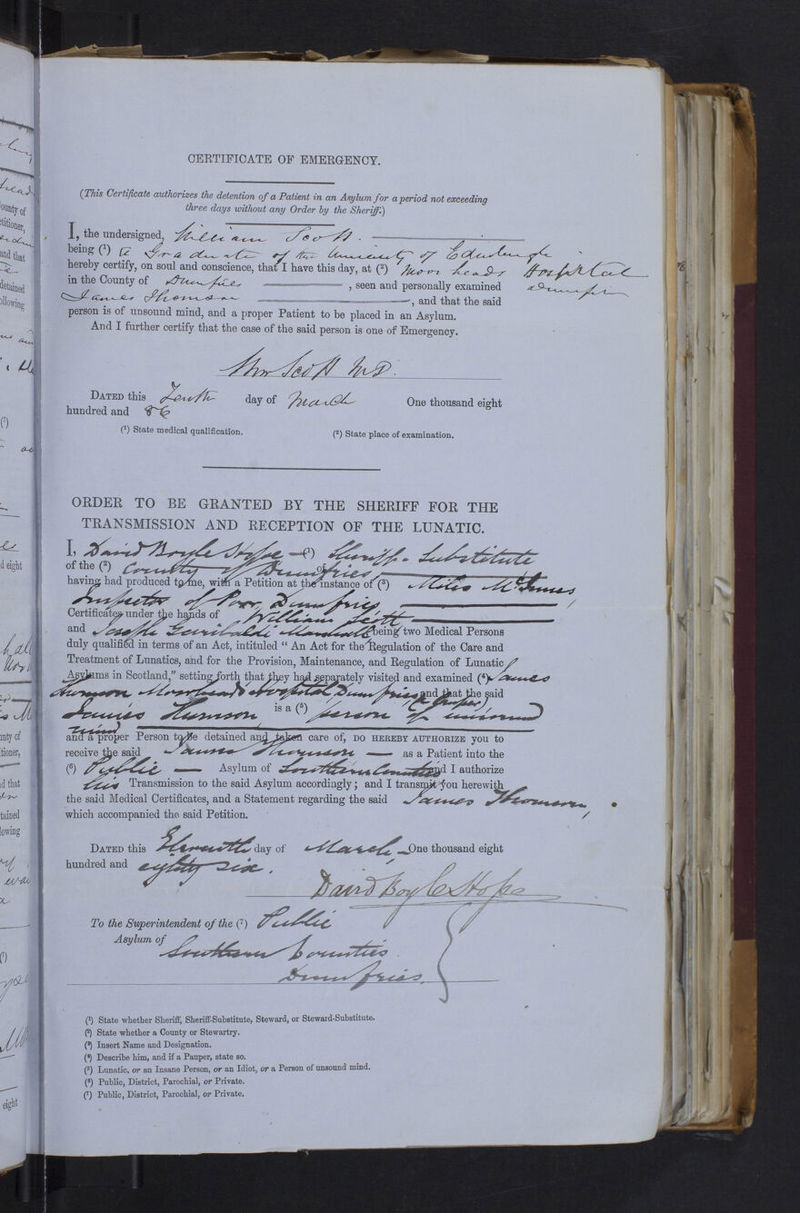 CERTIFICATE OF EMERGENCY.
(This Certificate authorizes the detention of a Patient in an Asylum for a period not exceeding
three days without any Order by the Sheriff.)
I, the undersigned, William Scott
being (1) a Graduate of the University of Edinburgh
hereby certify, on soul and conscience, that I have this day, at (2) Moorheads Hospital
in the County of Dumfries, seen and personally examined Dumfries
James Thomson, and that the said
person is of unsound mind, and a proper Patient to be placed in an Asylum.
And I further certify that the case of the said person is one of Emergency.
Wm Scott M.D.
DATED this Tenth day of March One thousand eight
hundred and 86
(1) State medical qualification. (2) State place of examination.
ORDER TO BE GRANTED BY THE SHERIFF FOR THE
TRANSMISSION AND RECEPTION OF THE LUNATIC.
I, David Boyle Hope (1) Sheriff-Substitute
of the (2) County of Dumfries
having had produced to me, with a Petition at the instance of (3) Miles McInnes
Inspector of Poor, Dumfries
Certificates under the hands of William Scott
and Joseph Garribaldi being two Medical Persons
duly qualified in terms of an Act, intituled "An Act for the Regulation of the Care and
Treatment of Lunatics, and for the Provision, Maintenance, and Regulation of Lunatic
Asylums in Scotland," setting forth that they had separately visited and examined (4) James
Thomson Moorheads Hospital Dumfries (a Pauper) and that the said
James Thomson, is a (5) person of unsound
mind
and a proper Person to be detained and taken care of, DO HEREBY AUTHORIZE you to
receive the said James Thomson as a Patient into the
(6) Public Asylum of Southern Counties and I authorize
his Transmission to the said Asylum accordingly; and I transmit you herewith
the said Medical Certificates, and a Statement regarding the said James Thomson,
which accompanied the said Petition.
DATED this Eleventh day of March, One thousand eight
hundred and eighty six.
David Boyle Hope
To the Superintendent of the (7) Public
Asylum of Southern Counties
Dumfries.
(1) State whether Sheriff, Sheriff-Substitute, Steward, or Steward-Substitute.
(2) State whether a County or Stewartry.
(3) Insert Name and Designation.
(4) Describe him, and if a Pauper, state so.
(5) Lunatic, or an Insane Person, or an Idiot, or a Person of unsound mind.
(6) Public, District, Parochial, or Private.
(7) Public, District, Parochial, or Private.